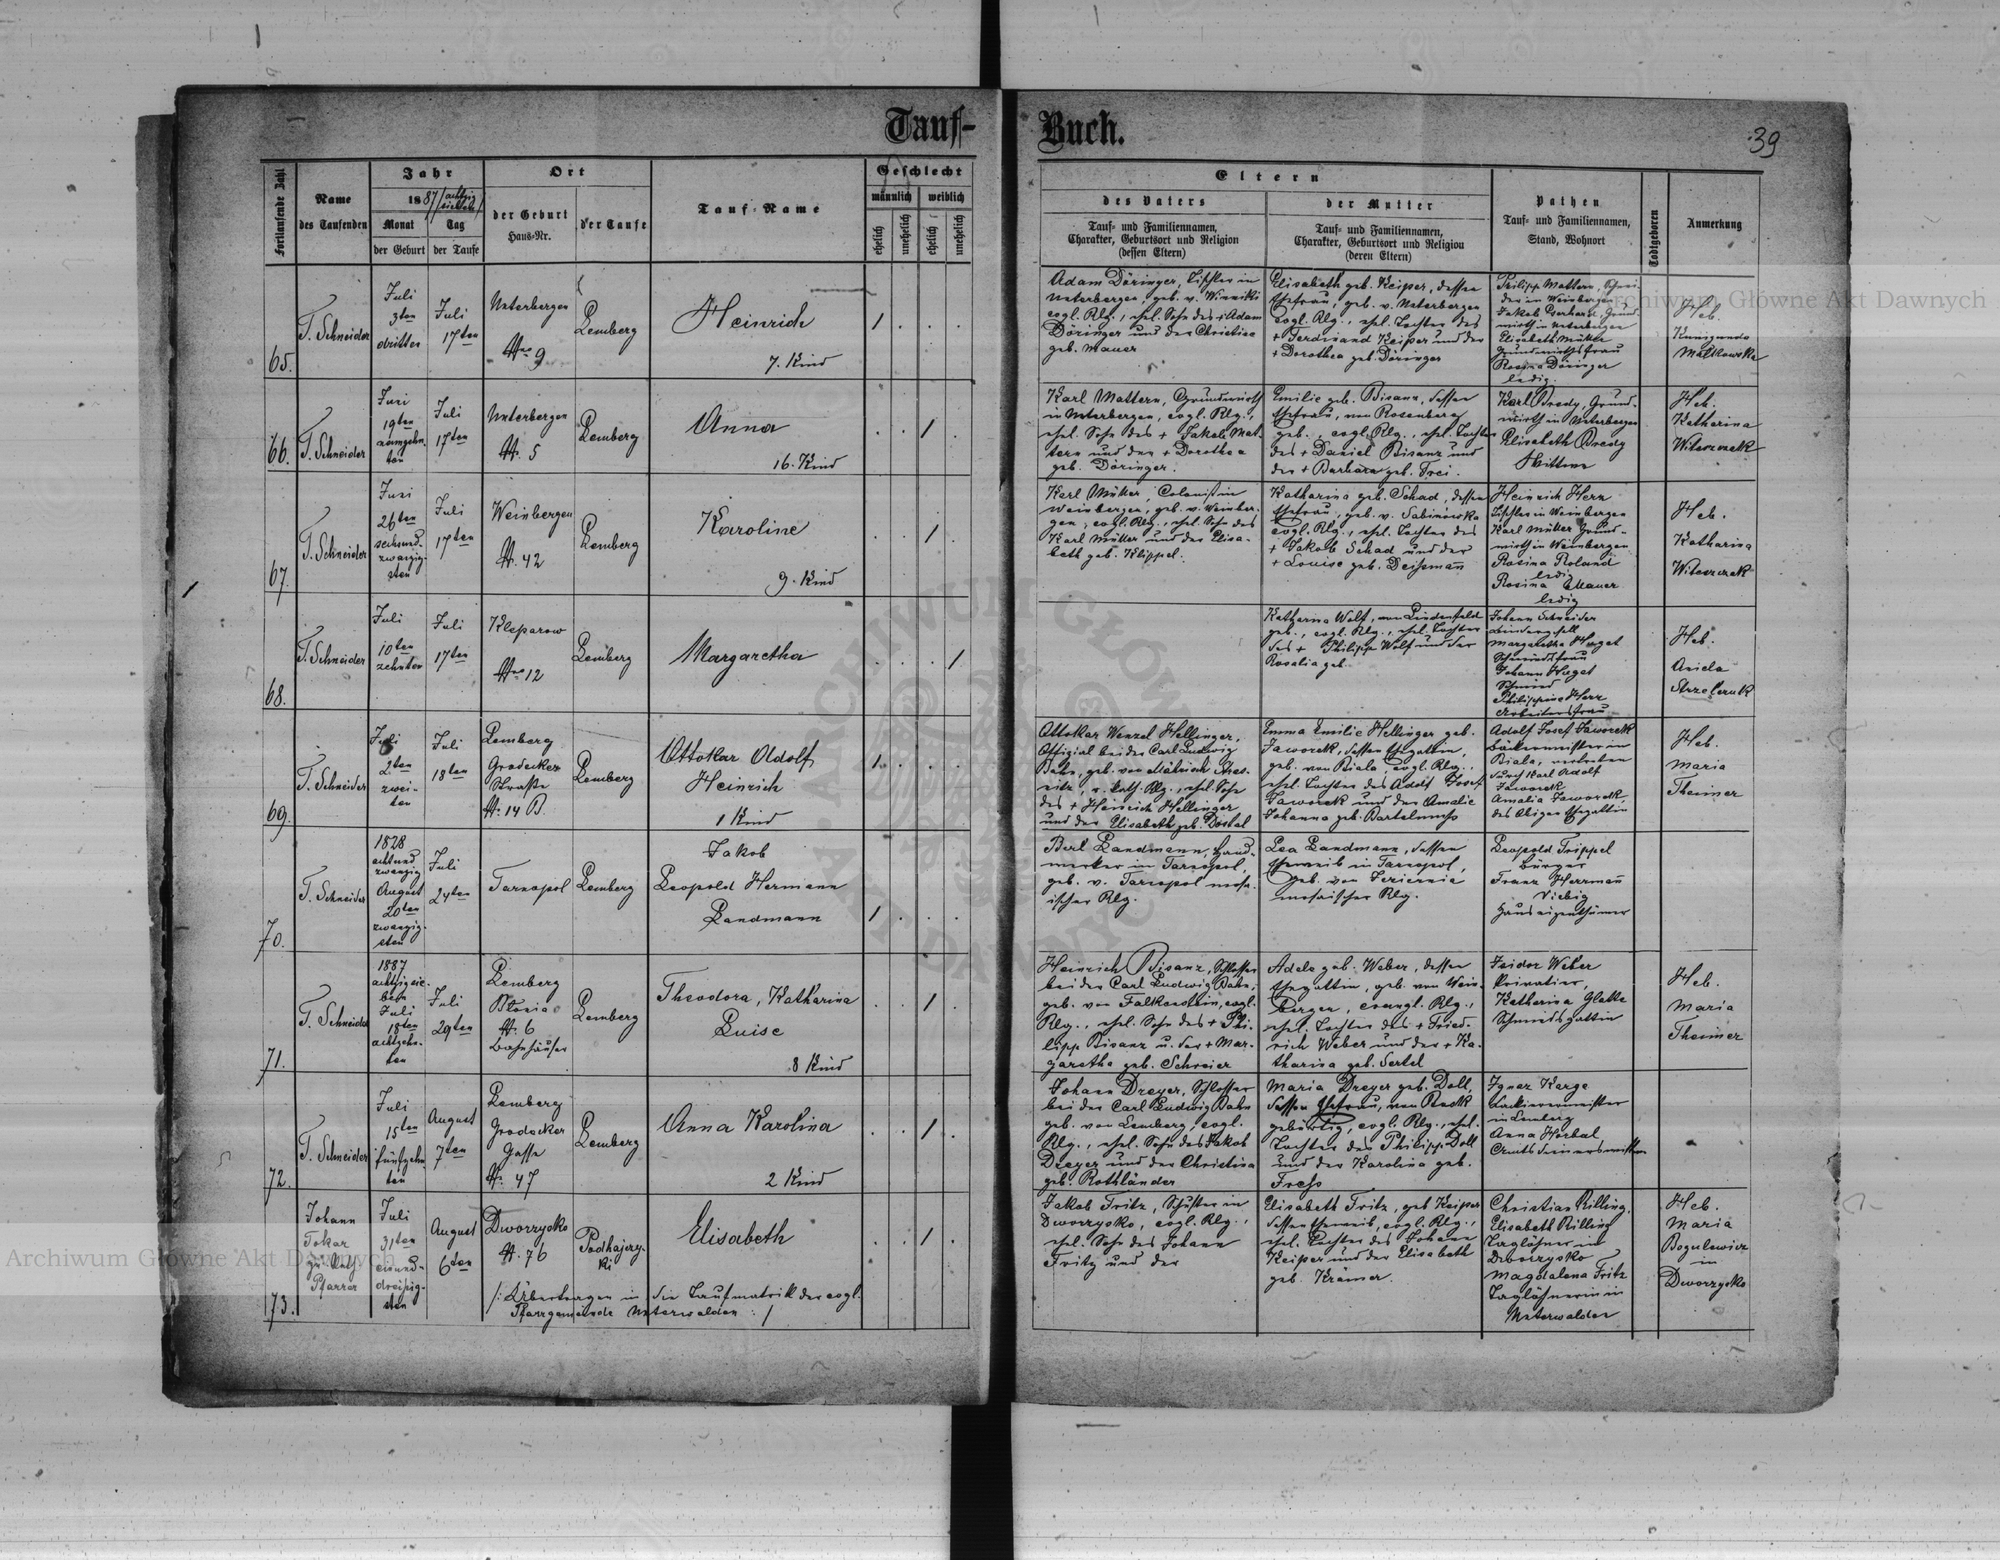 Tauf-Buch.
39
Fortlaufende Zahl
Name
des Taufenden
Jahr
1887 /achtzig
sieben/
Monat
der Geburt
Tag
der Taufe
Ort
der Geburt
Haus-Nr.
der Taufe
Tauf-Name
Geschlecht
männlich
weiblich
ehelich
unehelich
ehelich
unehelich
Eltern
des Vaters
Tauf- und Familiennamen,
Charakter, Geburtsort und Religion
(dessen Eltern)
der Mutter
Tauf- und Familiennamen,
Charakter, Geburtsort und Religion
(deren Eltern)
Pathen
Tauf- und Familiennamen,
Stand, Wohnort
Todtgeboren
Anmerkung
65.
T. Schneider
Juli
3ten
dritten
Juli
17ten
Unterbergen
Nro 9
Lemberg
Heinrich
7. Kind
1 . . .
Adam Döringer, Tischler in
Unterbergen, geb. v. Winniki
evgl. Rlg., ehel. Sohn des + Adam
Döringer und der Christina
geb. Mauer
Elisabeth geb. Keiper, dessen
Ehefrau, geb. v. Unterbergen
evgl. Rlg., ehel. Tochter des
+ Ferdinand Keiper und der
+ Dorothea geb. Döringer
Philipp Mattern, Schnei-
der in Weinbergen,
Jakob Gerhard, Grund-
wirth in Unterbergen
Elisabeth Müller
Grundwirthsfrau
Rosina Döringer
ledig.
Heb.
Kunigunda
Malkowska
66.
T. Schneider
Juni
19ten
neunzehn-
ten
Juli
17ten
Unterbergen
N. 5
Lemberg
Anna
16. Kind
. . 1 .
Karl Mattern, Grundwirth
in Unterbergen, evgl. Rlg.,
ehel. Sohn des + Jakob Mat-
tern und der + Dorothea
geb. Döringer.
Emilie geb. Bisanz, dessen
Ehefrau, von Rosenberg
geb., evgl. Rlg., ehel. Tochter
des + Daniel Bisanz und
der + Barbara geb. Frei.
Karl Bredy, Grund-
wirth in Unterbergen
Elisabeth Bredy
Wittwe
Heb.
Katharina
Witoszek
67.
T. Schneider
Juni
26ten
sechsund-
zwanzig-
sten
Juli
17ten
Weinbergen
N. 42
Lemberg
Karoline
9. Kind
. . 1 .
Karl Müller, Colonist in
Weinbergen, geb. v. Weinber-
gen, evgl. Rlg., ehel. Sohn des
Karl Müller und der Elisa-
beth geb. Klippel.
Katharina geb. Schad, dessen
Ehefrau, geb. v. Sabinowka
evgl. Rlg., ehel. Tochter des
+ Jakob Schad und der
+ Louise geb. Deißmann
Heinrich Herz
Tischler in Weinbergen
Karl Müller Grund-
wirth in Weinbergen
Rosina Roland
ledig
Rosina Mauer
ledig
Heb.
Katharina
Witoszek
68.
T. Schneider
Juli
10ten
zehnten
Juli
17ten
Kleparow
Nro 12
Lemberg
Margaretha
. . . 1
Katharina Wolf, von Lindenfeld
geb., evgl. Rlg., ehel. Tochter
des + Philipp Wolf und der
Rosalia geb.
Johann Schneider
Lindenfeld
Margaretha Huget
Schmiedsfrau
Johann Huget
Schmied
Philippine Herz
Arbeitersfrau
Heb.
Aniela
69.
T. Schneider
Juli
2ten
zwei-
ten
Juli
18ten
Lemberg
Grodecker
Strasse
N. 14 B.
Lemberg
Ottokar Adolf
Heinrich
1 Kind
1 . . .
Ottokar Wenzel Hellinger,
Offizial bei der Carl Ludwig
Bahn, geb. von Mährisch
r. kath. Rlg., ehel. Sohn
des + Heinrich Hellinger
und der Elisabeth geb. Dostal
Emma Emilie Hellinger geb.
Jaworek, dessen Ehegattin,
geb. von Biala, evgl. Rlg.,
ehel. Tochter des Adolf Josef
Jaworek und der Amalie
Johanna geb. Bartelmuss
Adolf Josef Jaworek
Bäckermeister in
Biala, vertreten
durch Karl Adolf
Jaworek
Amalia Jaworek,
des Obigen Ehegattin
Heb.
Maria
Theimer
70.
T. Schneider
1828
achtund
zwanzig
August
20ten
zwanzig-
sten
Juli
24ten
Tarnopol
Lemberg
Jakob
Leopold Hermann
Landmann
1 . . .
Berl Landmann, Hand-
werker in Tarnopol,
geb. v. Tarnopol mosa-
ischer Rlg.
Lea Landmann, dessen
Eheweib in Tarnopol,
geb. von Jeziernia
mosaischer Rlg.
Leopold Trippel
Bürger
Franz Herrmann
Viebig
Hauseigenthümer
71.
T. Schneider
1887
achtzigsie-
ben
Juli
18ten
achtzehn-
ten
Juli
29ten
Lemberg
Błonia
N. 6
Bahnhäuser
Lemberg
Theodora, Katharina
Luise
8 Kind
. . 1 .
Heinrich Bisanz, Schlosser
bei der Carl Ludwig Bahn,
geb. von Falkenstein, evgl.
Rlg., ehel. Sohn des + Phi-
lipp Bisanz u. der + Mar-
garetha geb. Schreier
Adele geb. Weber, dessen
Ehegattin, geb. von Wein-
bergen, evangl. Rlg.,
ehel. Tochter des + Fried-
rich Weber und der + Ka-
tharina geb. Sertel
Isidor Weber
Privatier,
Katharina Glatke
Schmiedsgattin
Heb.
Maria
Theimer
72.
T. Schneider
Juli
15ten
fünfzehn
ten
August
7ten
Lemberg
Grodecker
Gasse
N. 47
Lemberg
Anna Karolina
2 Kind
. . 1 .
Johann Dreyer, Schlosser
bei der Carl Ludwig Bahn
geb. von Lemberg, evgl.
Rlg., ehel. Sohn des Jakob
Dreyer und der Christina
geb. Rothländer
Maria Dreyer geb. Doll,
dessen Ehefrau, von
gebürtig, evgl. Rlg., ehel.
Tochter des Philipp Doll
und der Karolina geb.
Fress
Ignaz Kerge
Lackierermeister
in Lemberg
Anna Horbal
Amtsdienerswittwe
73.
Johann
Tokar
gr. kath.
Pfarrer
Juli
31ten
einund-
dreißig-
sten
August
6ten
Dworzysko
N. 76
Podhajczy-
ki
Elisabeth
. . 1 .
/: Übertragen in die Taufmatrik der evgl.
Pfarrgemeinde Unterwalden :/
Jakob Fritz, Schuster in
Dworzysko, evgl. Rlg.,
ehel. Sohn des Johann
Fritz und der
Elisabeth Fritz, geb Keiper
dessen Eheweib, evgl. Rlg.,
ehel. Tochter des Johann
Keiper und der Elisabeth
geb. Krämer.
Christian Rilling,
Elisabeth Rilling
Taglöhner in
Dworzysko
Magdalena Fritz
Taglöhnerin in
Unterwalden
Heb.
Maria
Bogulewicz
in
Dworzysko
Archiwum Główne Akt Dawnych
Archiwum Główne Akt Dawnych
ARCHIWUM GŁÓWNE AKT DAWNYCH